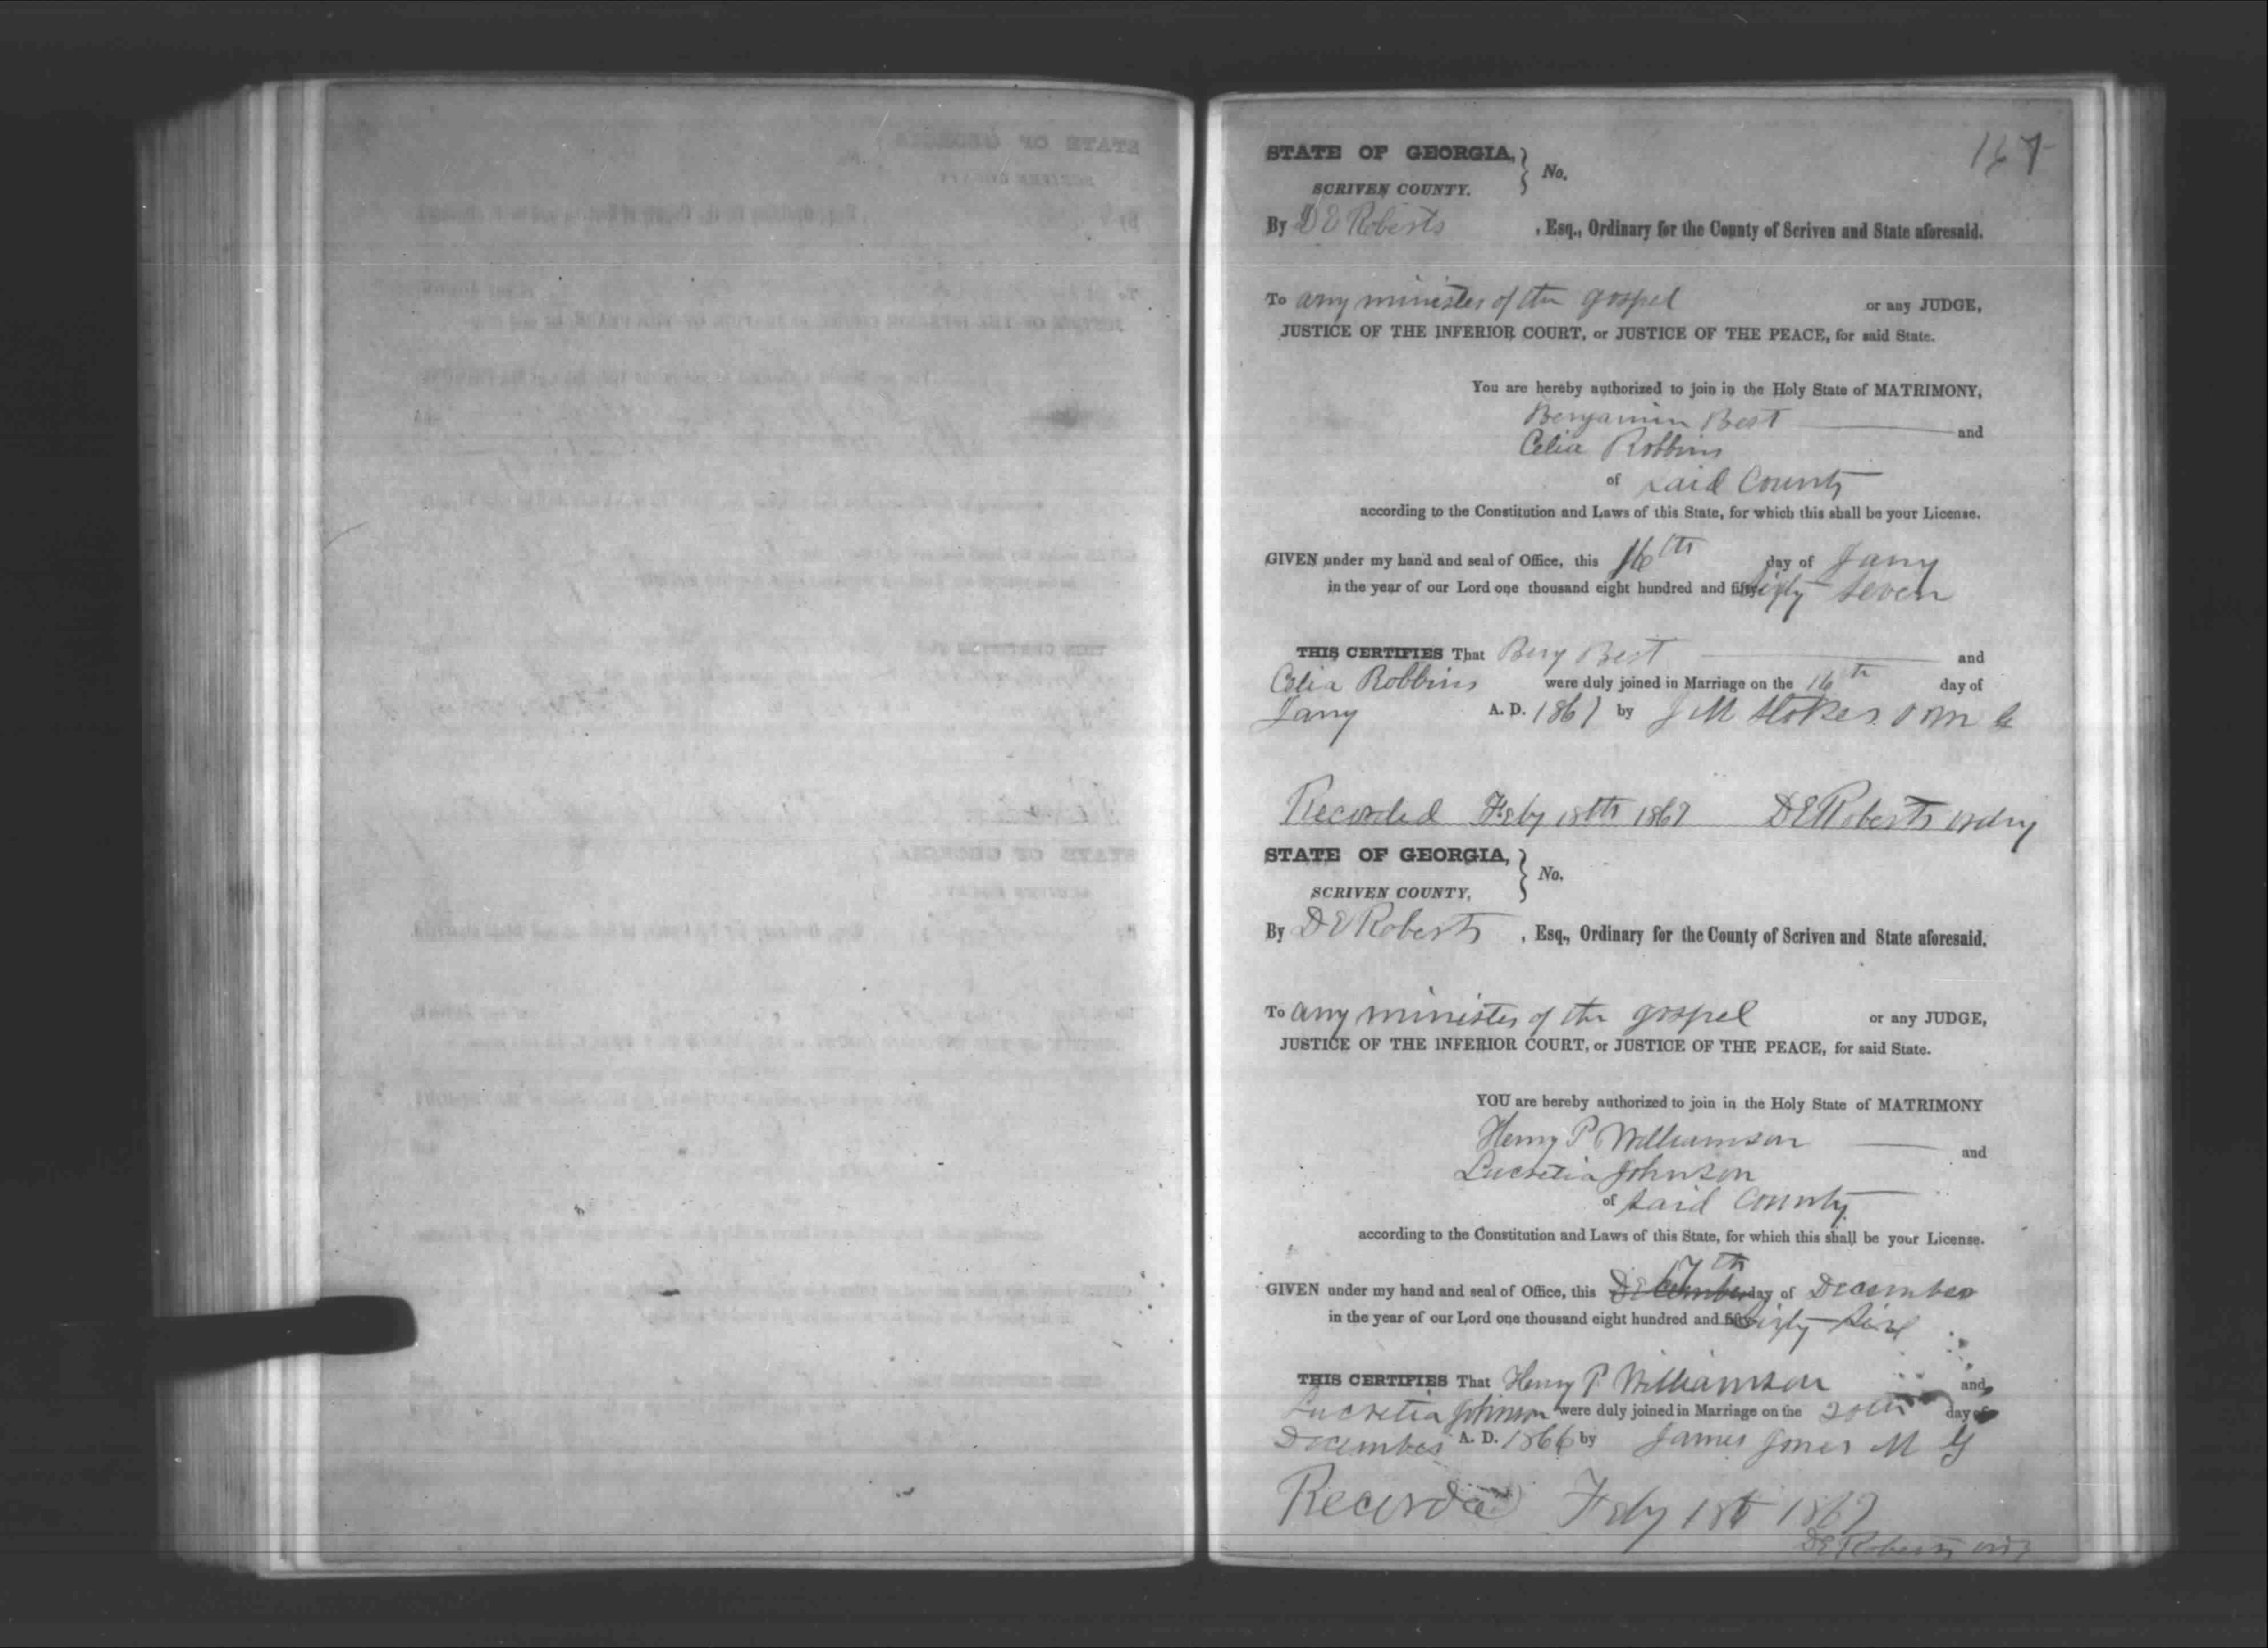 167
STATE OF GEORGIA, } No.
SCRIVEN COUNTY.
By D E Roberts , Esq., Ordinary for the County of Scriven and State aforesaid.
To any minister of the gospel or any JUDGE,
JUSTICE OF THE INFERIOR COURT, or JUSTICE OF THE PEACE, for said State.
You are hereby authorized to join in the Holy State of MATRIMONY,
Benjamin Best and
Celia Robbins
of said County
according to the Constitution and Laws of this State, for which this shall be your License.
GIVEN under my hand and seal of Office, this 16th day of Jany
in the year of our Lord one thousand eight hundred and fifty sixty seven
THIS CERTIFIES That Benj Best and
Celia Robbins were duly joined in Marriage on the 16th day of
Jany A. D. 1867 by J M Stokes
Recorded Feby 18th 1867 D E Roberts ordny
STATE OF GEORGIA, } No.
SCRIVEN COUNTY,
By D E Roberts , Esq., Ordinary for the County of Scriven and State aforesaid.
To any minister of the gospel or any JUDGE,
JUSTICE OF THE INFERIOR COURT, or JUSTICE OF THE PEACE, for said State.
YOU are hereby authorized to join in the Holy State of MATRIMONY
Henry P Williamson and
Lucretia Johnson
of said County
according to the Constitution and Laws of this State, for which this shall be your License.
GIVEN under my hand and seal of Office, this December 17th day of December
in the year of our Lord one thousand eight hundred and fifty sixty six
THIS CERTIFIES That Henry P Williamson and
Lucretia Johnson were duly joined in Marriage on the 20th day of
December A. D. 1866 by James Jones M G
Recorded Feby 18th 1867
D E Roberts ordy